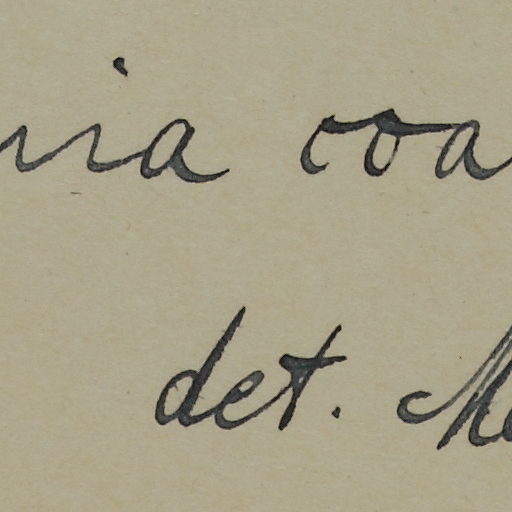 nia coa
det. Me